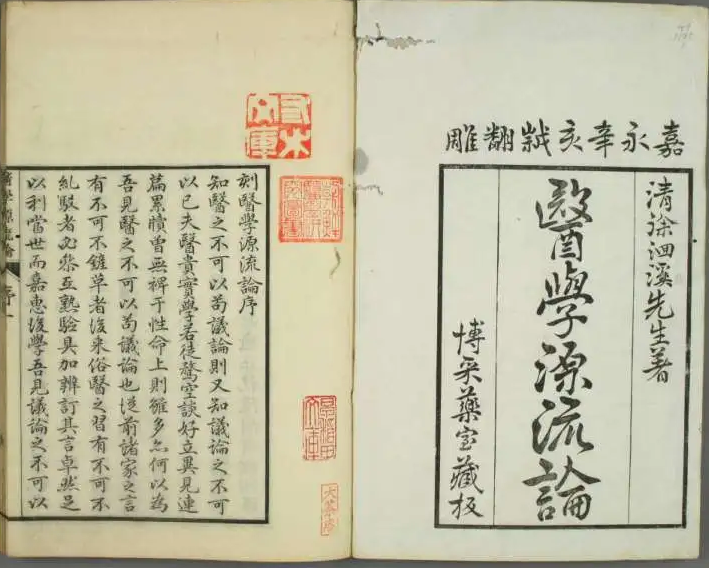 嘉永辛亥秋翻雕
清徐洄溪先生著
醫學源流論
博采藥室藏板
刻醫學源流論序
知醫之不可以苟議論則又知議論之不可
以已夫醫貴實學若徒騖空談好立異見連
篇累牘曾無裨于性命上則雖多亦何以為
吾見醫之不可以苟議論也從前諸家之言
有不可不鏟草者後来俗醫之習有不可不
糺駁者必叅互熟驗具加辨訂其言卓然足
以利當世而嘉惠後學吾見議論之不可以
醫學源流論 序 一